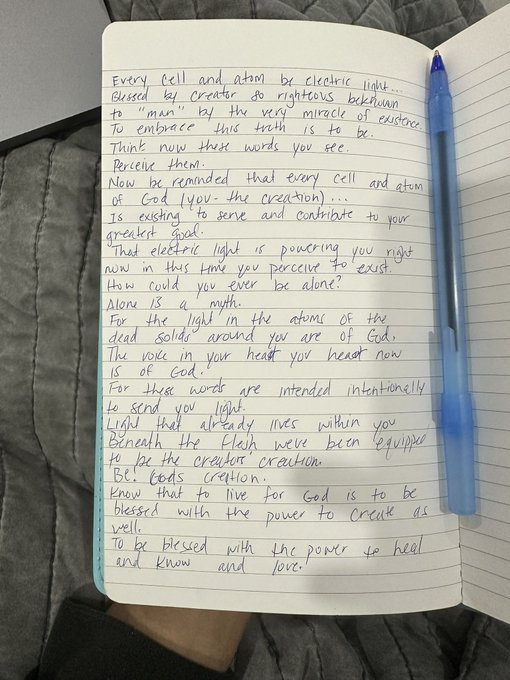 Every cell and atom be electric light...
Blessed by creator so righteous beknown
to "man" by the very miracle of existence.
To embrace this truth is to be.
Think now these words you see.
Perceive them.
Now be reminded that every cell and atom
of God (you - the creation)...
Is existing to serve and contribute to your
greatest good.
That electric light is powering you right
now in this time you perceive to exist.
How could you ever be alone?
Alone is a myth.
For the light in the atoms of the
dead solids around you are of God.
The voice in your heart you heart now
is of God.
For these words are intended intentionally
to send you light.
Light that already lives within you
Beneath the flesh weve been equipped
to be the creators creation.
Be! Gods creation.
Know that to live for God is to be
blessed with the power to create as
well.
To be blessed with the power to heal
and know and love.